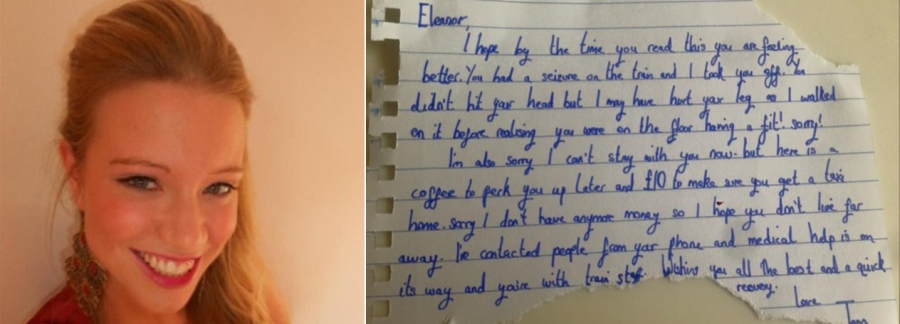 Eleanor,
I hope by the time you read this you are feeling
better. You had a seizure on the train and I took you off. You
didn't hit your head but I may have hurt your leg as I walked
on it before realising you were on the floor having a fit! Sorry!
I'm also sorry I can't stay with you now. but here is a
coffee to perk you up later and £10 to make sure you get a taxi
home. Sorry I don't have anymore money so I hope you don't live far
away. I've contacted people from your phone and medical help is on
its way and you're with train staff. Wishing you all the best and a quick
recovery.
Love Tom